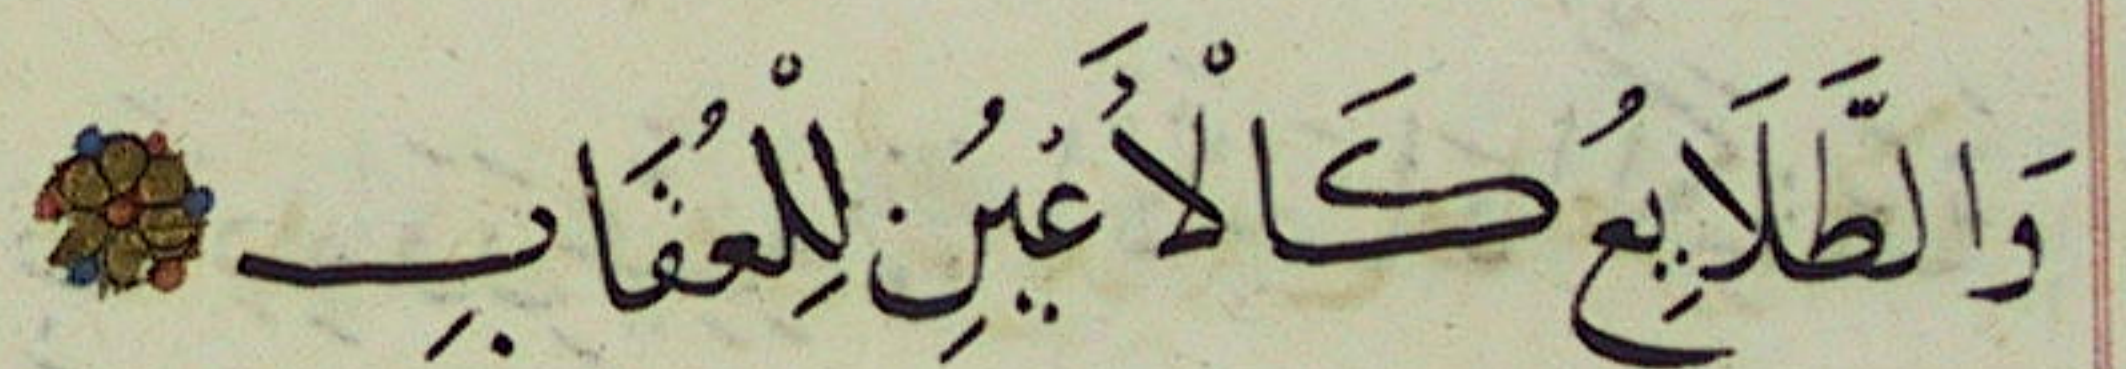 وَالطَّلَايِعُ كَالْأَعْيُنِ لِلْعُقَابِ